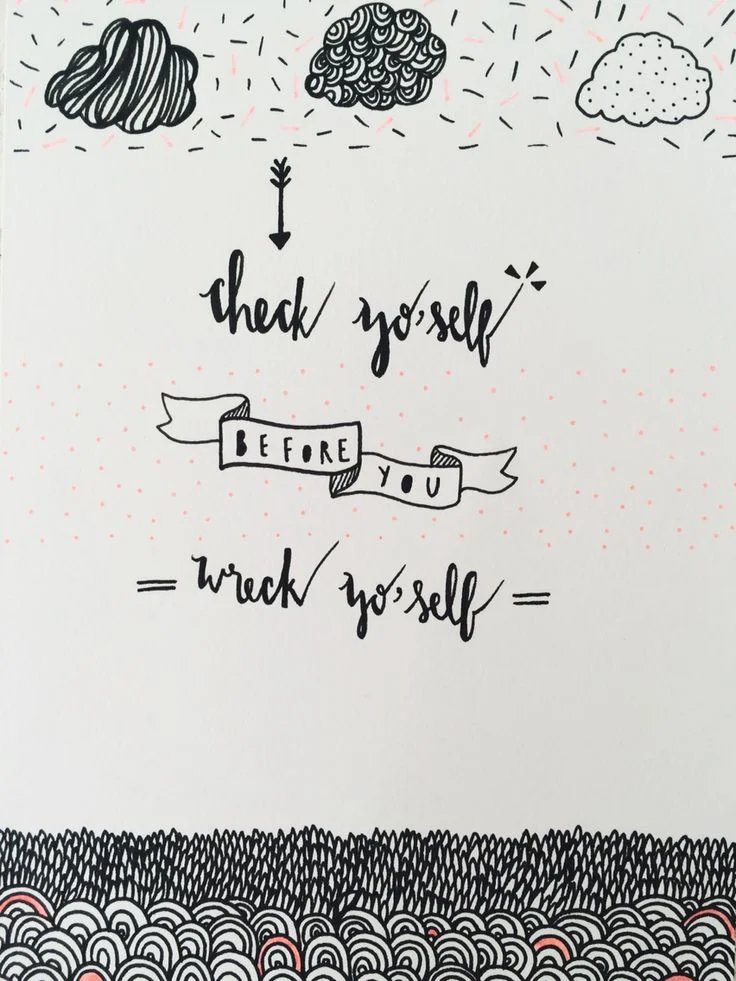 check yo'self
BEFORE YOU
wreck yo'self